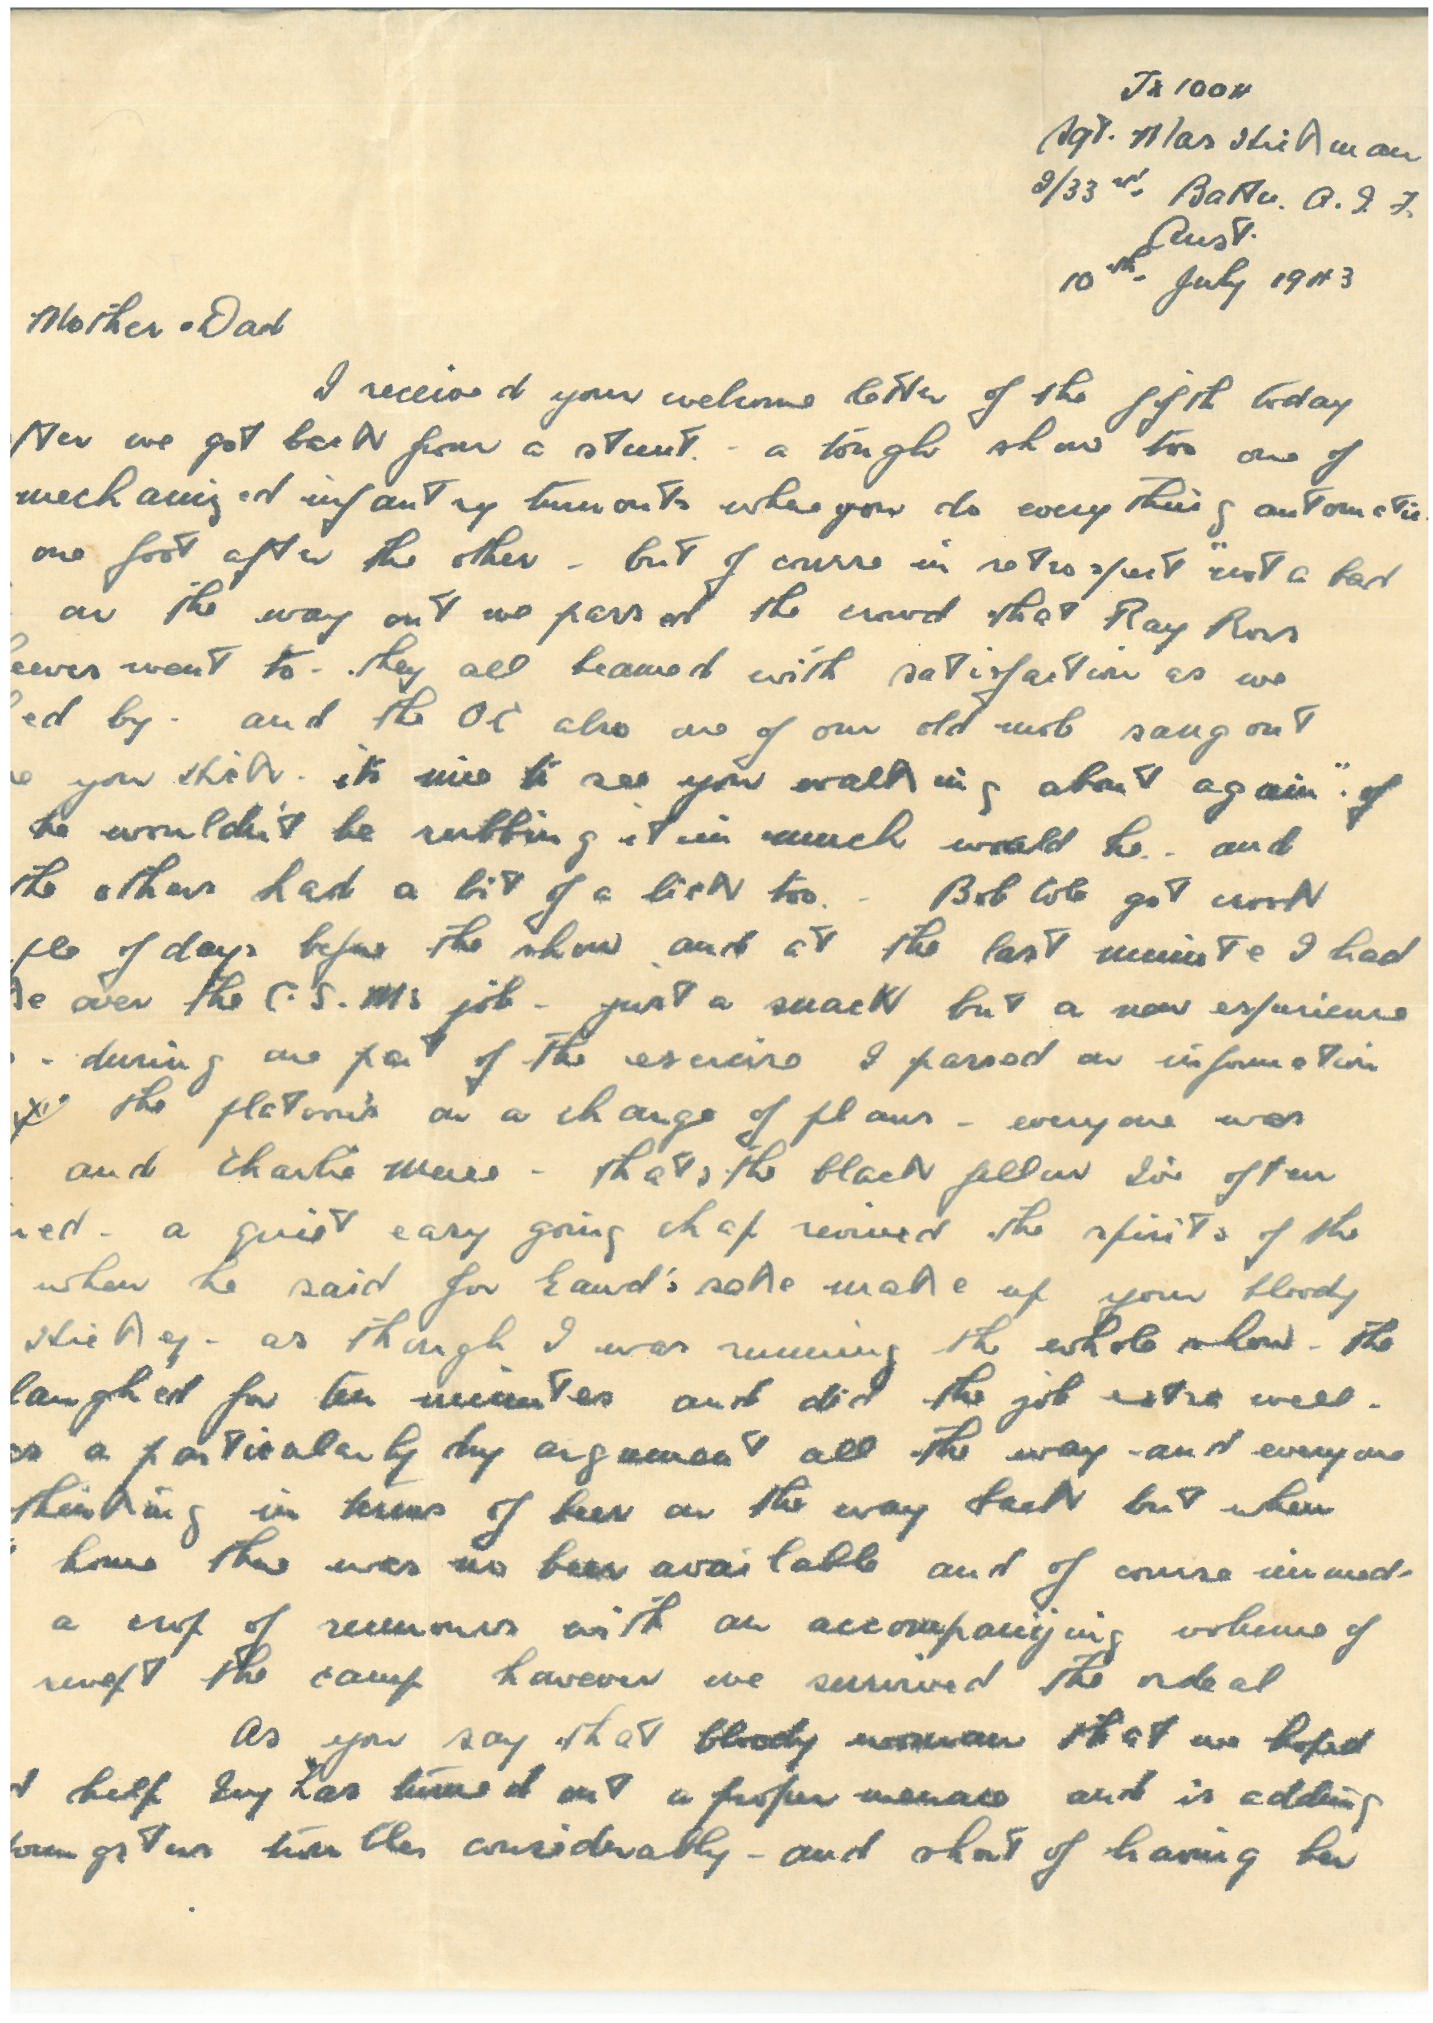 Tx 1004
Sgt. Max Hickman
2/33rd. Battn. A. I. F.
Aust.
10th. July 1943
Mother & Dad
I received your welcome letter of the fifth today
after we got back from a stunt. - a tough show too one of
mechanized infantry turnouts where you do everything automatic
one foot after the other - but of course in retrospect "not a bad
on the way out we passed the crowd that Ray Ross
went to - they all beamed with satisfaction as we
ed by - and the OC also one of our old mob sang out
you Hick - its nice to see you walking about again". of
he wouldn't be rubbing it in much would he. - and
the others had a bit of a lick too. - Bob Cole got crook
ple of days before the show and at the last minute I had
ke over the C.S.Ms job - just a snack but a new experience
- during one part of the exercise I passed on information
the platoons on a change of plans - everyone was
and Charlie - thats the black fellow Ive often
ned - a quiet easy going chap revived the spirits of the
when he said for Gawd's sake make up your bloody
Hickey - as though I was running the whole show - the
laughed for ten minutes and did the job extra well -
as a particularly dry argument all the way - and everyone
thinking in terms of beer on the way back but when
home there was no beer available and of course immed-
a crop of rumours with an accompanying volume of
swept the camp however we survived the ordeal
As you say that bloody woman that we hoped
d help has turned out a proper menace and is adding
youngsters troubles considerably - and short of having her